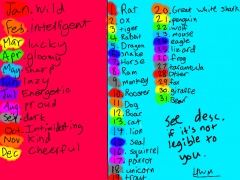 Jan. Wild
Feb. Intelligent
Mar lucky
Apr gloomy
May Sharp
Jun lazy
Jul Energetic
Aug Proud
Sep. dark
Oct. Intimidating
Nov Kind
Dec Cheerful
1. Rat
2. OX
3. tiger
4. Rabbit
5. Dragon
6. Snake
7. Horse
8. Ram
9. monkey
10. Rooster
11. Dog
12. Boar
13. cat
14. lion
15. Seal
16. Squirrel
17. parrot
18. unicorn
20. Great white shark
21. penguin
22. wolf
23. mouse
24. eagle
25. lizard
26. Frog
27. tarantula
28. Otter
29. fox
30. giraffe
31. Bear
see desc.
if it's not
legible to
you.